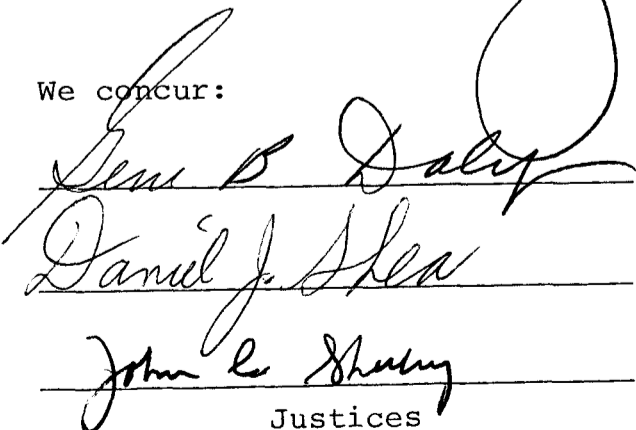 We concur:
Gene B Daly
Daniel J. Shea
John C. Sheehy
Justices